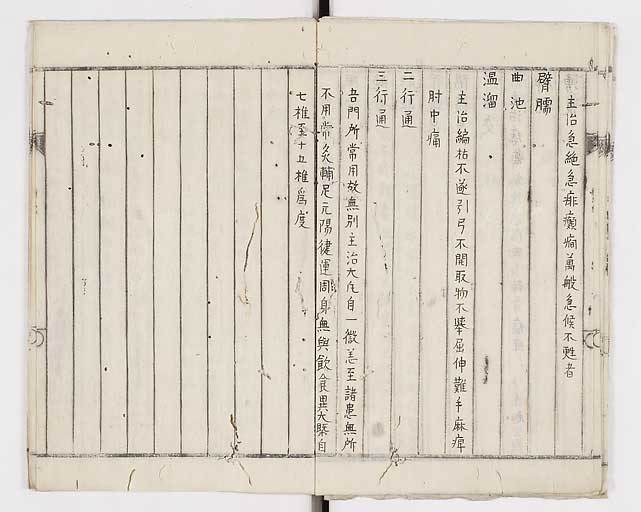 主治急絶急痱癲癇萬般急候不甦者
臂臑
曲池
温溜
主治編枯不遂引弓不開取物不擧屈伸難手麻痺
肘中痛
二行通
三行通
吾門所常用故無別主治大凡自一微恙至諸患無所
不用常灸輔足元陽健運周身無與飲食異大槩自
七椎至十五椎爲度